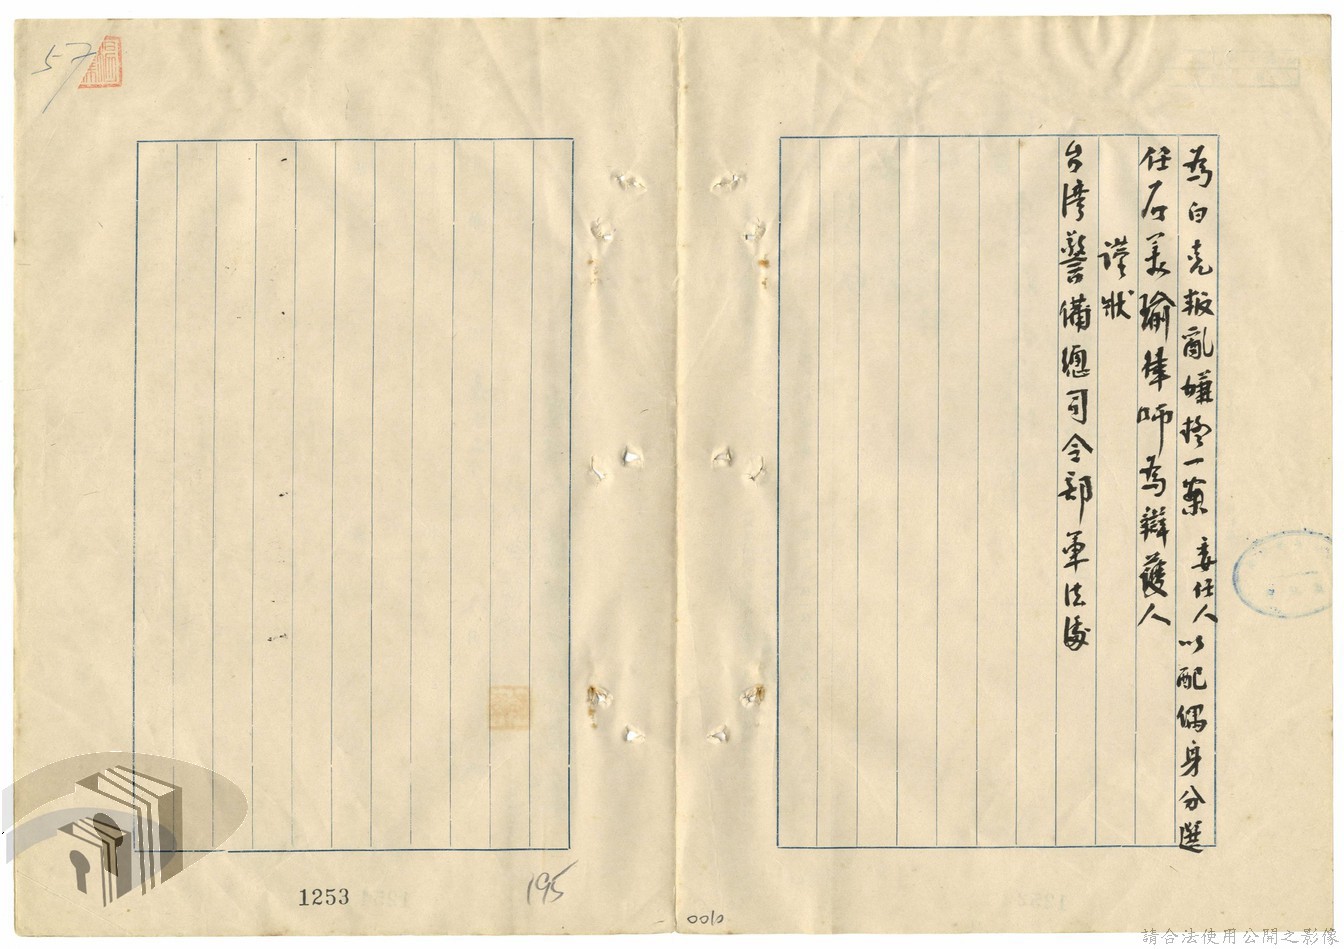 為白克叛亂嫌擬一案 委任人以配偶身分選
任石美瑜律師為辯護人
謹狀
台湾警備總司令部軍法處
57
1253
195
0010
請合法使用公開之影像